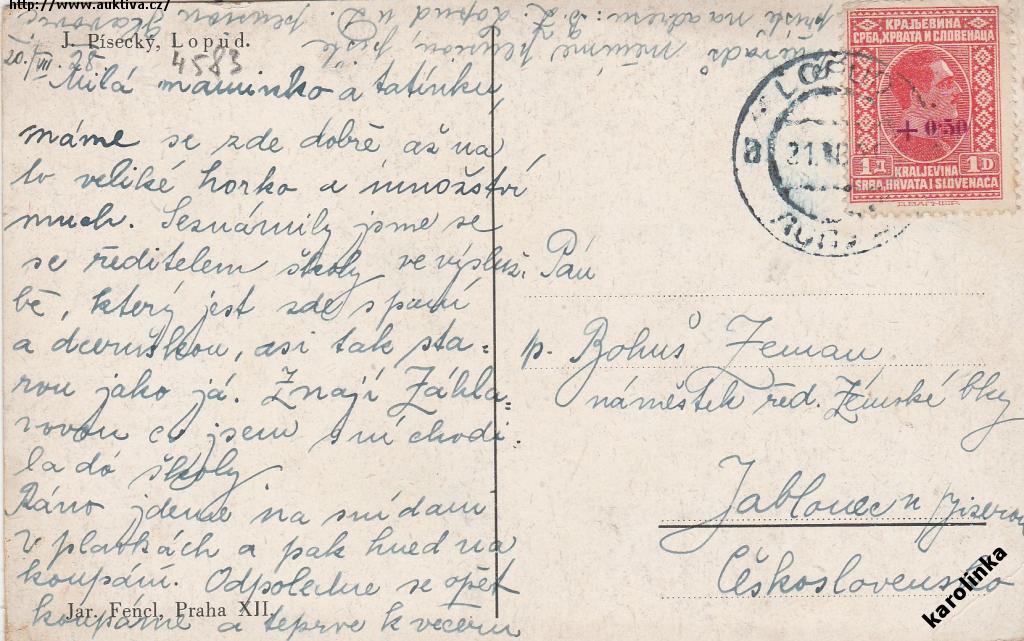 http://www.auktiva.cz/
J. Písecký, Lopud.
20./VIII. 28
4583
Milá maminko a tatínku
máme se zde dobře až na
to veliké horko a množství
much. Seznámily jsme se
se ředitelem školy ve výsluž:
bě, který jest zde s paní
a dceruškou, asi tak sta=
rou jako já. Znají Záhla=
vovou co jsem s ní chodi
la do školy.
Ráno jdeme na snídani
v plavkách a pak hned na
koupání. Odpoledne se opět
koupáme a teprve k večeru
Jar. Fencl, Praha XII.
pište na adresu: B. Z. Lopud u D. pension
měníme pension, pište
КРАЉЕВИНА
СРБА, ХРВАТА И СЛОВЕНАЦА
+ 0·50
1Д 1D
KRALJEVINA
SRBA, HRVATA I SLOVENACA
LOPUD
a
Pán
p. Bohuš Zeman
náměstek řed. Zemské bky
Jablonec n/Jizerou
Československo
karolinka